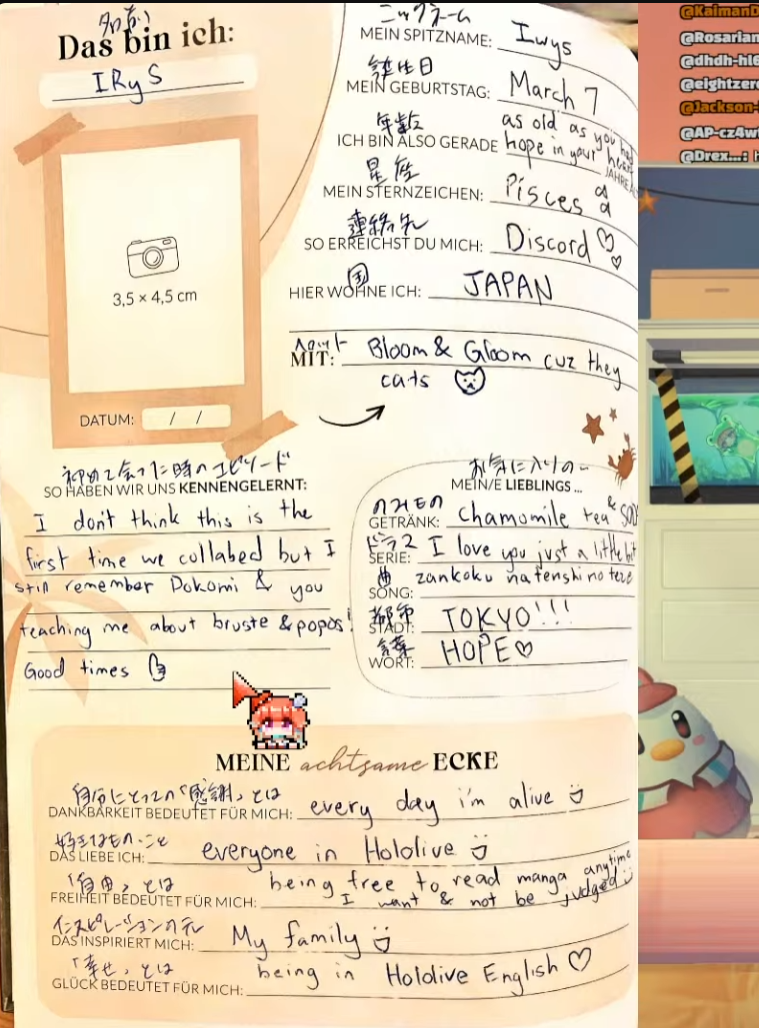 名前
Das bin ich:
IRyS
3,5 × 4,5 cm
DATUM: / /
ニックネーム
MEIN SPITZNAME: Iwys
誕生日
MEIN GEBURTSTAG: March 7
年齢
as old as you had
ICH BIN ALSO GERADE hope in your heart
JAHRE
星座
MEIN STERNZEICHEN: Pisces
連絡先
SO ERREICHST DU MICH: Discord ♡♡
国
HIER WOHNE ICH: JAPAN
ペット
MIT: Bloom & Gloom cuz they
cats
初めて会った時のエピソード
SO HABEN WIR UNS KENNENGELERNT:
I don't think this is the
first time we collabed but I
still remember Dokomi & you
teaching me about bruste & popos!
Good times
お気に入りの
MEIN/E LIEBLINGS ...
のみもの
GETRÄNK: chamomile tea &
ドラマ
SERIE: I love you just a little bit
曲
SONG: zankoku na tenshi no teze
都市
STADT: TOKYO!!!
言葉
WORT: HOPE♡
MEINE achtsame ECKE
自分にとっての「感謝」とは
DANKBARKEIT BEDEUTET FÜR MICH: every day i'm alive
好きなもの・こと
DAS LIEBE ICH: everyone in Hololive
「自由」とは
being free to read manga anytime
FREIHEIT BEDEUTET FÜR MICH: I want & not be judged
インスピレーションの元
DAS INSPIRIERT MICH: My family
「幸せ」とは
GLÜCK BEDEUTET FÜR MICH: being in Hololive English ♡
@KaimanD
@Rosarian
@dhdh-hl6
@eightzero
@Jackson-
@AP-cz4w
@Drex...: